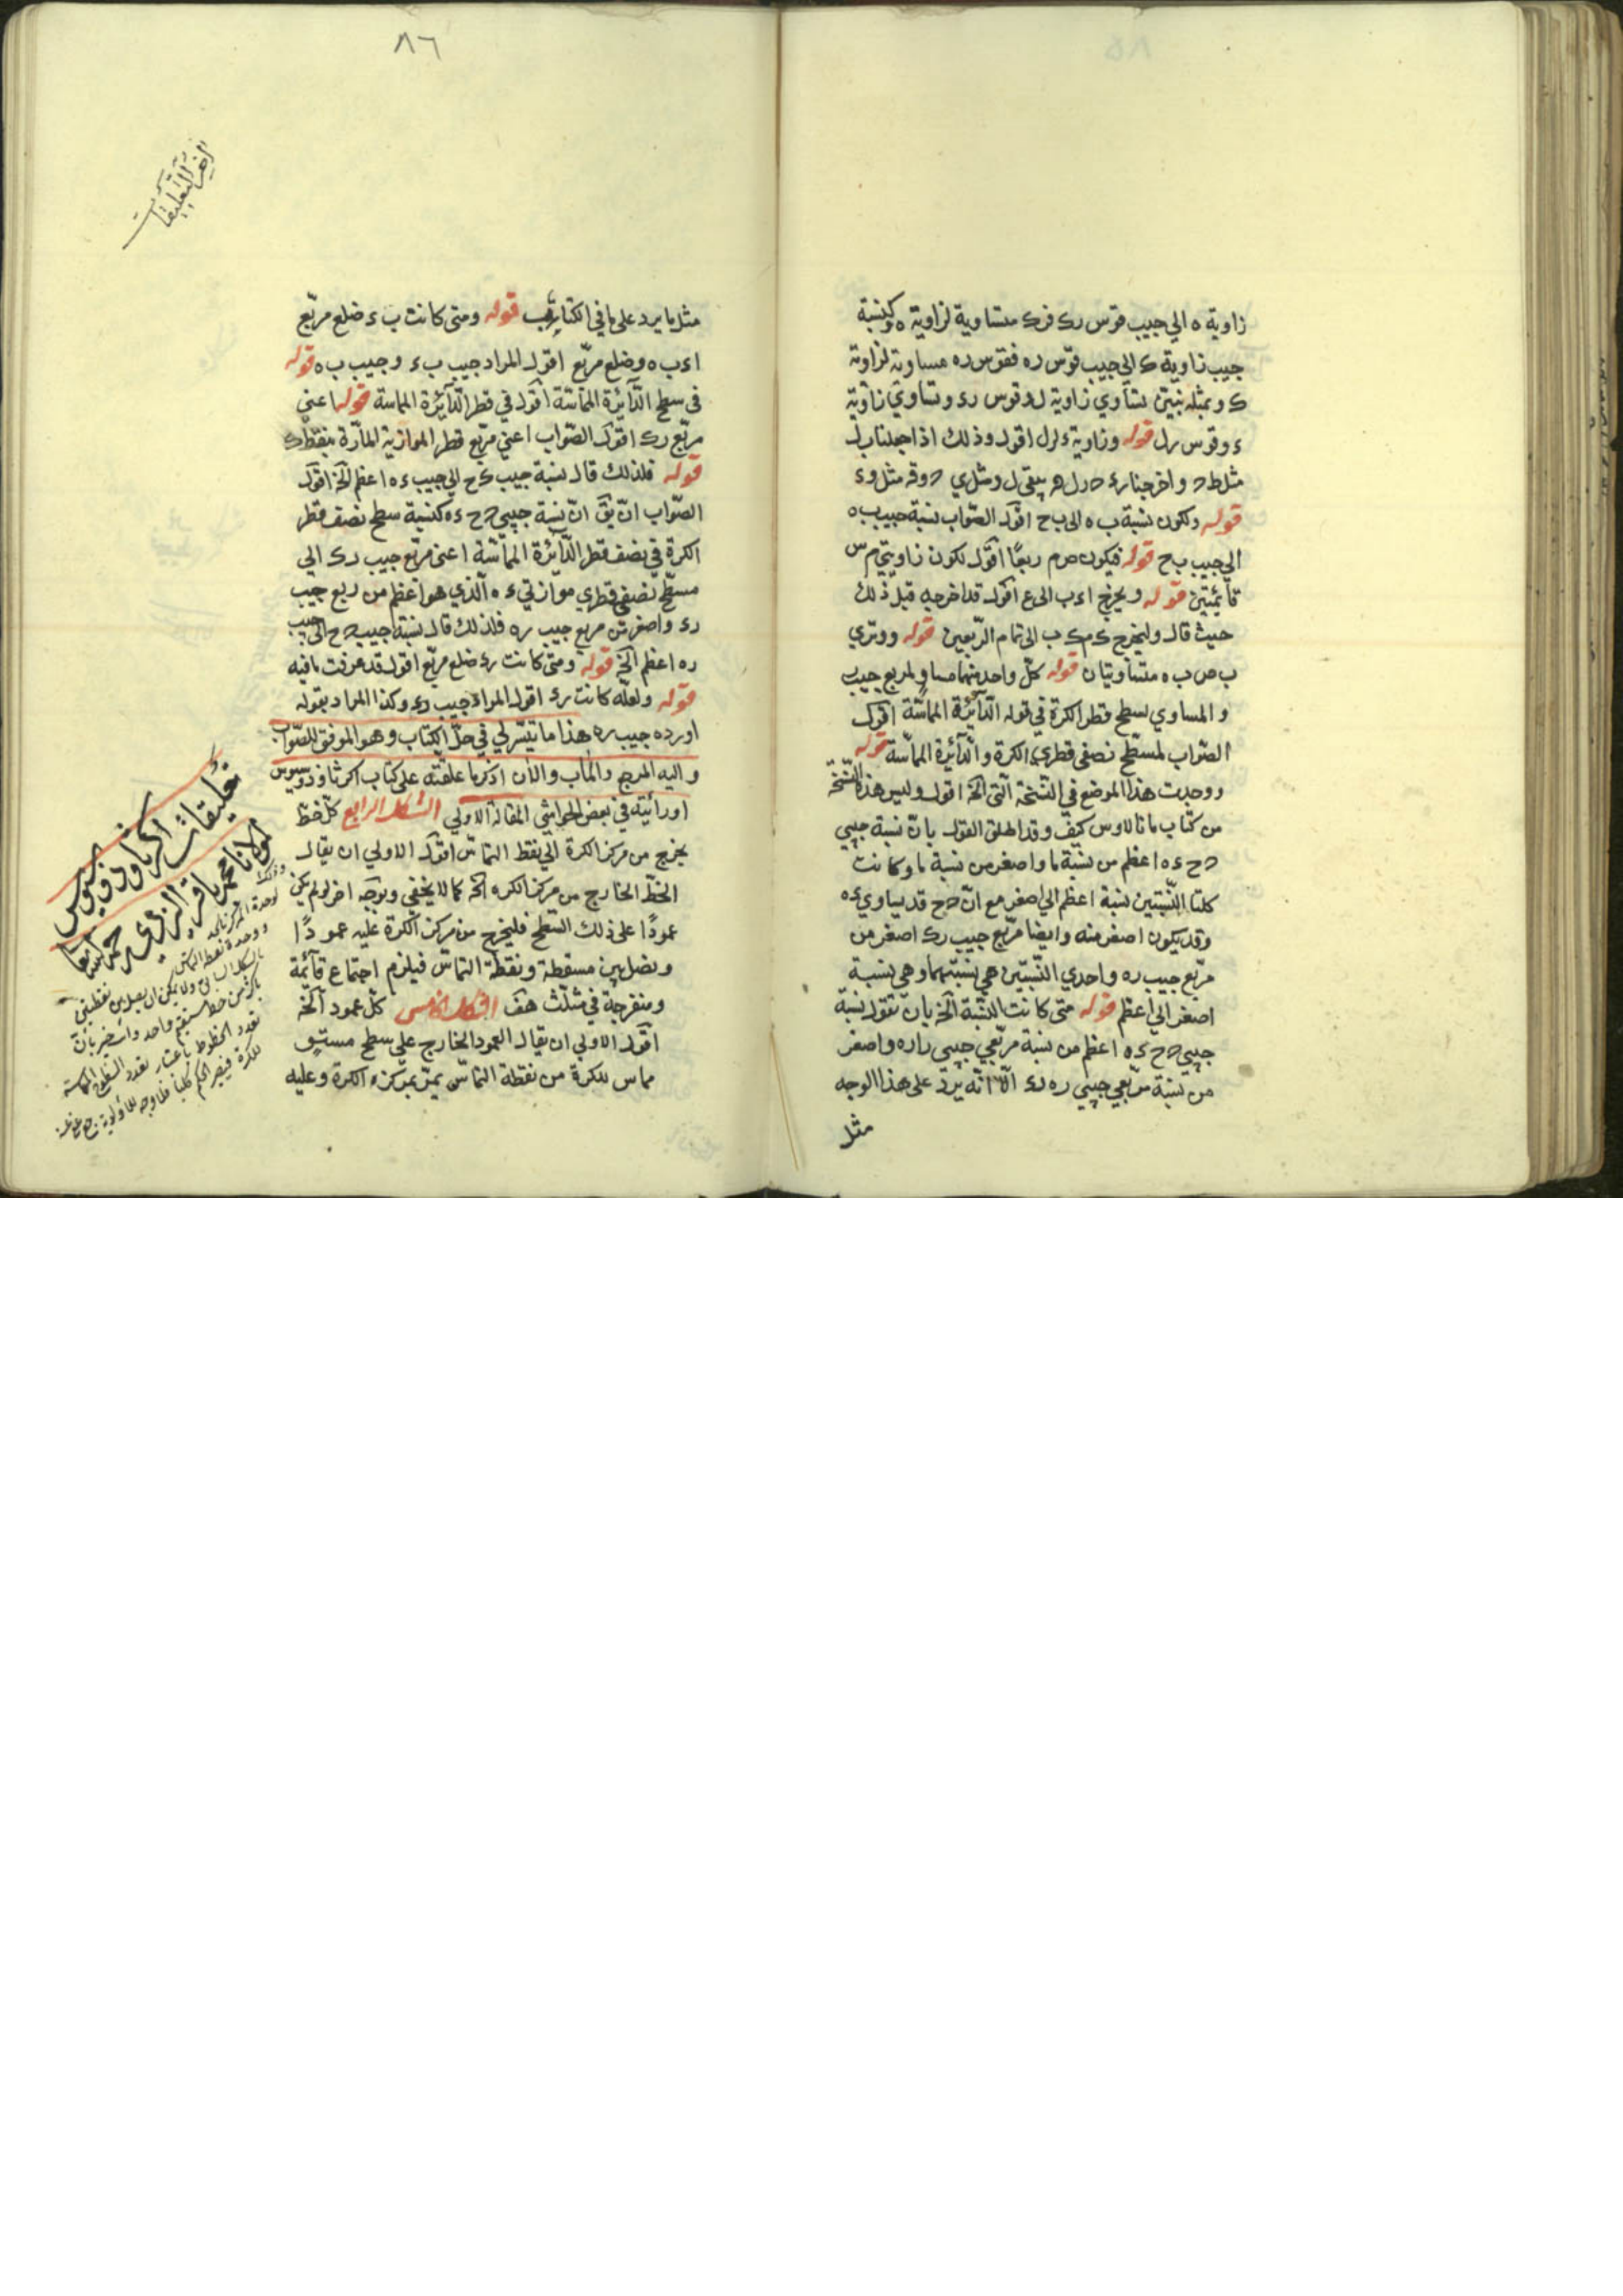 زاوية ه الي جيب قوس رك فرك متساوية لزاوية ه وكنسبة
جيب زاوية ك الي جيب قوس ره فقوس ره مساوية لزاوية
ك وبمثله نبين تساوي زاوية ل وقوس رء وتساوي زاوية
ء وقوس رل قوله وزاوية ء لرل اقول وذلك اذا جعلنا ب ل
مثل ط ح واخرجنا رء
قوله ولكون نسبة ب ه الي ب ح اقول الصّواب نسبة جيب ب ه
الي جيب ب ح قوله فيكون ص م ربعًا اقول لكون زاويتي م س
قائمتين قوله ويخرج ا ء ب الي ع اقول قد اخرجه قبل ذلك
حيث قال وليخرج ك م ك ب الي تمام الربعين قوله ووتري
ب ص ب ه متساويتان قوله كلّ واحد منهما مساوٍ لمربع جيب
والمساوي لسطح قطر الكرة في قوله الدّآئرة المماسّة اقول
الصّواب لمسطّح نصفي قطري الكرة والدّآئرة المماسّة قوله
ووجدت هذا الموضع في النسخة التي الخ اقول وليس هذا النسخة
من كتاب مانالاوس كيف وقد اطلق القول بانّ نسبة جيبي
ح ح ء ه اعظم من نسبة ما واصغر من نسبة ما وكانت
كلتا النّسبتين نسبة اعظم الي اصغر مع انّ ح ح قد يساوي ء ه
وقد يكون اصغر منه وايضا مربّع جيب رك اصغر من
مربّع جيب ره واحدي النّسبتين هي نسبتهما وهي نسبة
اصغر الي اعظم قوله متى كانت النسبة الخ بان نقول نسبة
جيبي ح ح ء ه اعظم من نسبة مربّعي جيبي را ره واصغر
من نسبة مربّعي جيبي ره رء الّا انّه يرد على هذا الوجه
مثل
٨٦
آخر التعليقات
مثل ما يرد على ما في الكتاب قوله ومتى كانت ب ء ضلع مربّع
ا ء ب ه وضلع مربّع اقول المراد جيب ب ء وجيب ب ه قوله
في سطح الدّآئرة المماسّة اقول في قطر الدّآئرة المماسة قوله اعني
مربّع رك اقول الصّواب اعني مربّع قطر الموازية المارّة بنقطة ك
قوله فلذلك قال نسبة جيب ك ح الي جيب ء ه اعظم الخ اقول
الصّواب ان يق انّ نسبة جيبي ح ح ء ه كنسبة سطح نصف قطر
الكرة في نصف قطر الدّآئرة المماسّة اعني مربّع جيب رك الي
مسطّح نصفي قطري موازيتي ء ه الّذي هو اعظم من ربع جيب
رء واصغر من مربع جيب ره فلذلك قال نسبة جيب ح ح الي جيب
ره اعظم الخ قوله ومتى كانت رء ضلع مربّع اقول قد عرفت ما فيه
قوله ولعلّه كانت رء اقول المراد جيب رء وكذا المراد بقوله
اورده جيب ره هذا ما تيسّر لي في حلّ الكتاب وهو الموفق للصّواب
واليه المرجع والمآب والان اذكر ما علقته على كتاب اكر ثاوذوسيوس
اورائيته في بعض الحواشي المقالة الاولي الشكل الرابع كلّ خطّ
يخرج من مركز الكرة الي نقطة التماسّ اقول الاولي ان يقال
الخطّ الخارج من مركز الكره الخ كما لا يخفي وبوجه اخر لو لم يكن
عمودًا على ذلك السّطح فليخرج من مركز الكرة عليه عمودًا
ونصل بين مسقطه ونقطة التماسّ فيلزم اجتماع قآئمة
ومنفرجة في مثلّث هف الشكل الخامس كلّ عمود الخ
اقول الاولي ان يقال العمود الخارج على سطح مستوٍ
مماس للكرة من نقطة التماسّ يمرّ بمركز الكرة وعليه
تعليقات اكر ثاوذوسيوس
مولانا محمد باقر اليزدي رحمه الله تعا
وذلك
لوحدة المركز
ووحدة نقطة التماس
بالشكل السابق ولا يمكن ان يصل بين نقطتين
باكثر من خط مستقيم واحد
تعدد الخطوط باعتبار تعدد السطوح المماسة
للكرة فيصير الحكم كليا فلا وجه للاولوية